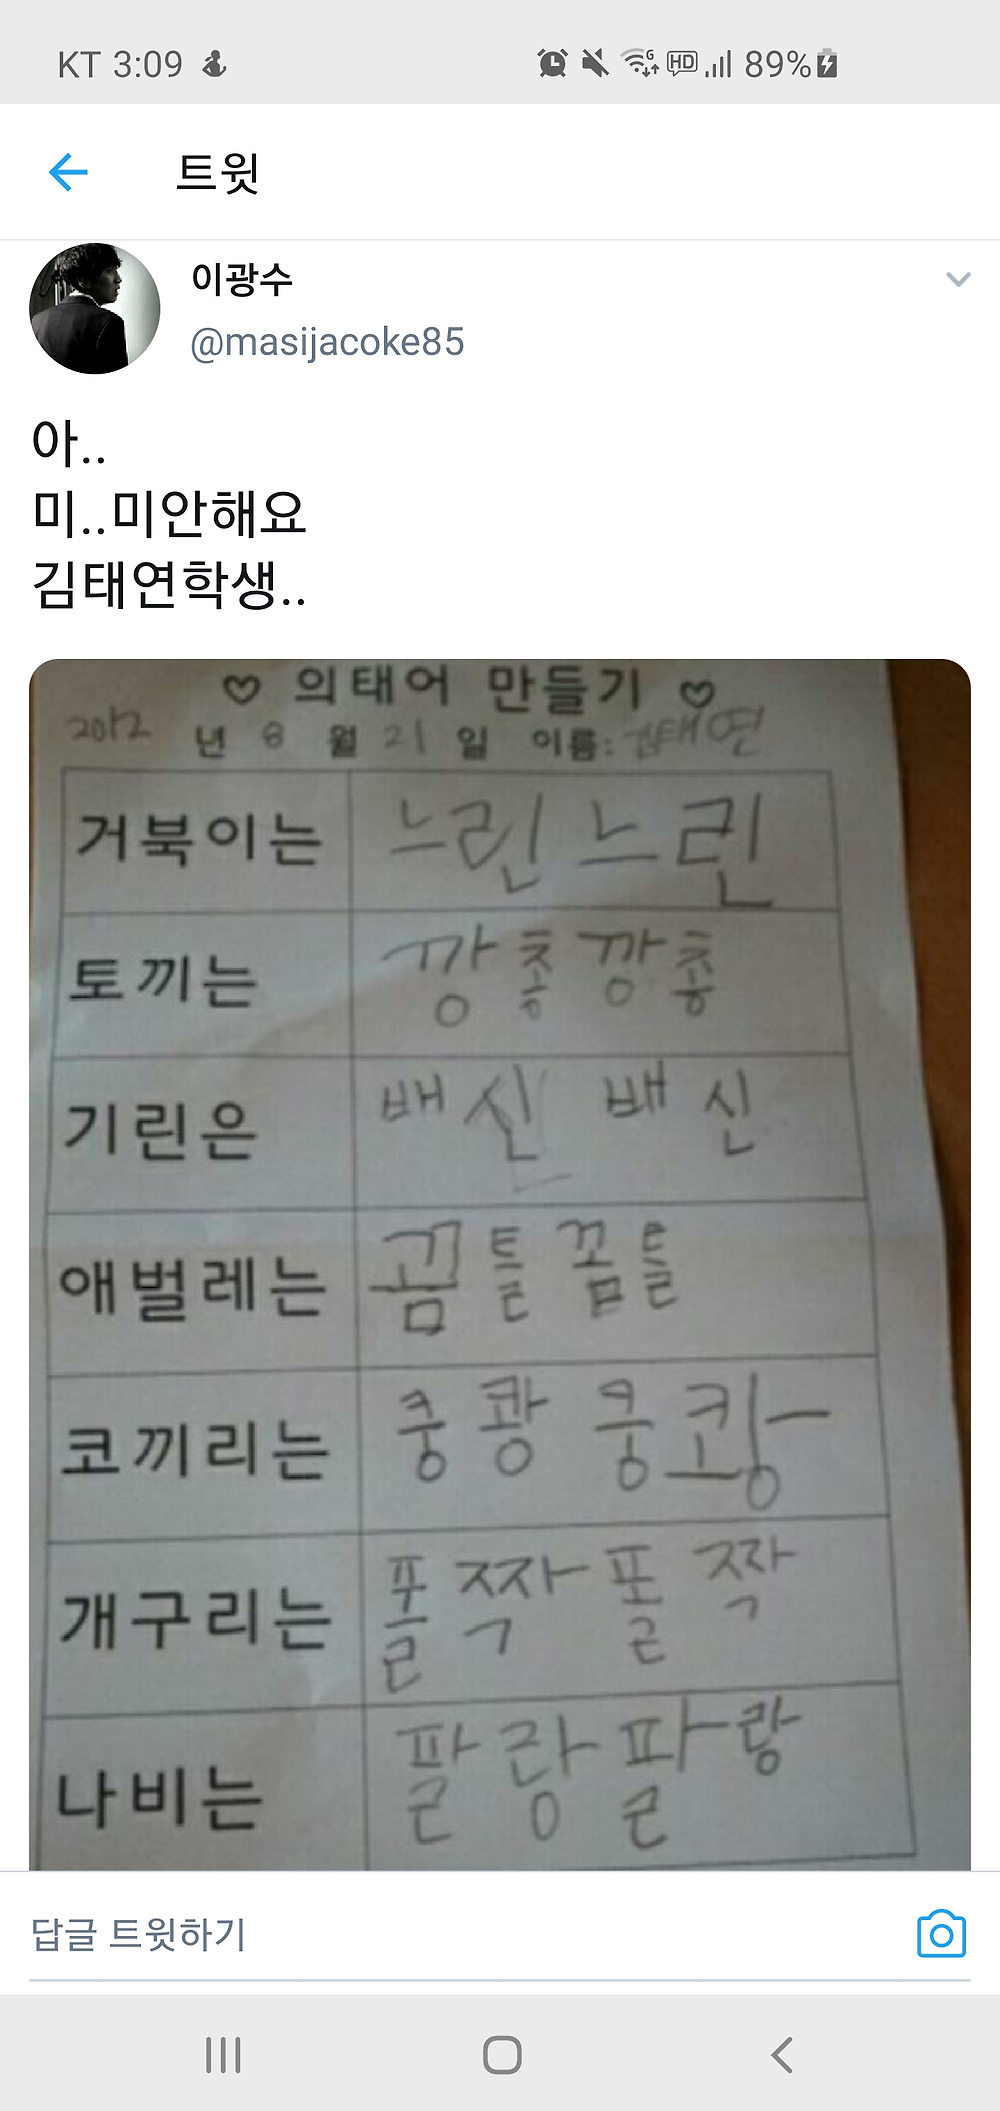 KT 3:09
HD 89%
트윗
이광수
@masijacoke85
아..
미..미안해요
김태연학생..
♡ 의태어 만들기 ♡
2012 년 8 월 21 일 이름: 김태연
거북이는 느린느린
토끼는 깡총깡총
기린은 배신 배신
애벌레는 꿈틀꼼틀
코끼리는 쿵쾅쿵쾅
개구리는 풀짝폴짝
나비는 팔랑팔랑
답글 트윗하기